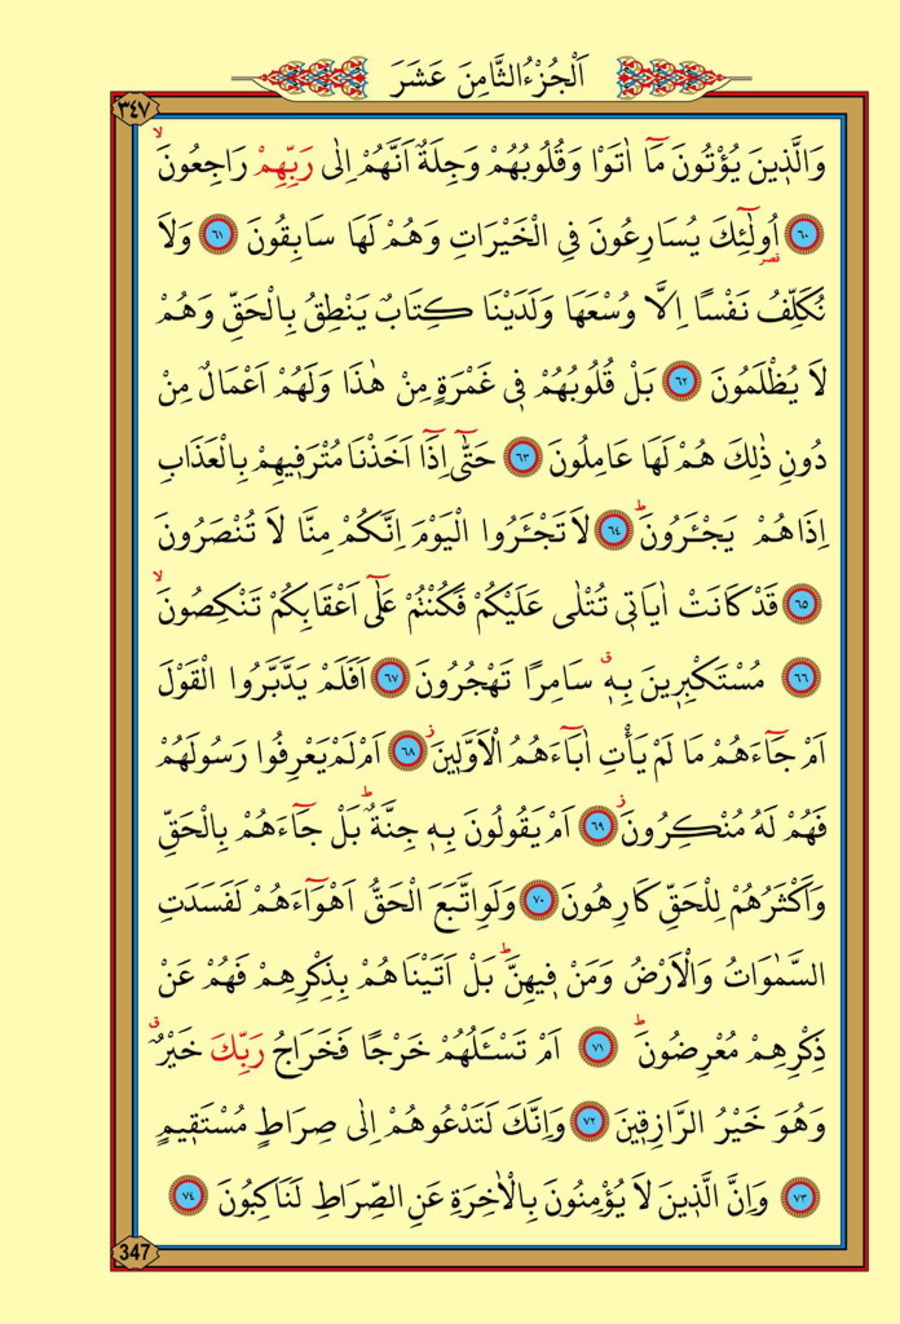 اَلْجُزْءُ الثَّامِنَ عَشَرَ
٣٤٧
وَالَّذ۪ينَ يُؤْتُونَ مَٓا اٰتَوْا وَقُلُوبُهُمْ وَجِلَةٌ اَنَّهُمْ اِلٰى رَبِّهِمْ رَاجِعُونَۙ
﴿٦٠﴾ اُو۬لٰٓئِكَ يُسَارِعُونَ فِي الْخَيْرَاتِ وَهُمْ لَهَا سَابِقُونَ ﴿٦١﴾ وَلَا
نُكَلِّفُ نَفْسًا اِلَّا وُسْعَهَا وَلَدَيْنَا كِتَابٌ يَنْطِقُ بِالْحَقِّ وَهُمْ
لَا يُظْلَمُونَ ﴿٦٢﴾ بَلْ قُلُوبُهُمْ ف۪ي غَمْرَةٍ مِنْ هٰذَا وَلَهُمْ اَعْمَالٌ مِنْ
دُونِ ذٰلِكَ هُمْ لَهَا عَامِلُونَ ﴿٦٣﴾ حَتّٰٓى اِذَٓا اَخَذْنَا مُتْرَف۪يهِمْ بِالْعَذَابِ
اِذَا هُمْ يَجْـَٔرُونَۜ ﴿٦٤﴾ لَا تَجْـَٔرُوا الْيَوْمَ اِنَّكُمْ مِنَّا لَا تُنْصَرُونَ
﴿٦٥﴾ قَدْ كَانَتْ اٰيَات۪ي تُتْلٰى عَلَيْكُمْ فَكُنْتُمْ عَلٰٓى اَعْقَابِكُمْ تَنْكِصُونَۙ
﴿٦٦﴾ مُسْتَكْبِر۪ينَ بِه۪ۗ سَامِرًا تَهْجُرُونَ ﴿٦٧﴾ اَفَلَمْ يَدَّبَّرُوا الْقَوْلَ
اَمْ جَٓاءَهُمْ مَا لَمْ يَأْتِ اٰبَٓاءَهُمُ الْاَوَّل۪ينَۘ ﴿٦٨﴾ اَمْ لَمْ يَعْرِفُوا رَسُولَهُمْ
فَهُمْ لَهُ مُنْكِرُونَۘ ﴿٦٩﴾ اَمْ يَقُولُونَ بِه۪ جِنَّةٌۜ بَلْ جَٓاءَهُمْ بِالْحَقِّ
وَاَكْثَرُهُمْ لِلْحَقِّ كَارِهُونَ ﴿٧٠﴾ وَلَوِ اتَّبَعَ الْحَقُّ اَهْوَٓاءَهُمْ لَفَسَدَتِ
السَّمٰوَاتُ وَالْاَرْضُ وَمَنْ ف۪يهِنَّۜ بَلْ اَتَيْنَاهُمْ بِذِكْرِهِمْ فَهُمْ عَنْ
ذِكْرِهِمْ مُعْرِضُونَۜ ﴿٧١﴾ اَمْ تَسْـَٔلُهُمْ خَرْجًا فَخَرَاجُ رَبِّكَ خَيْرٌۗ
وَهُوَ خَيْرُ الرَّازِق۪ينَ ﴿٧٢﴾ وَاِنَّكَ لَتَدْعُوهُمْ اِلٰى صِرَاطٍ مُسْتَق۪يمٍ
﴿٧٣﴾ وَاِنَّ الَّذ۪ينَ لَا يُؤْمِنُونَ بِالْاٰخِرَةِ عَنِ الصِّرَاطِ لَنَاكِبُونَ ﴿٧٤﴾
347